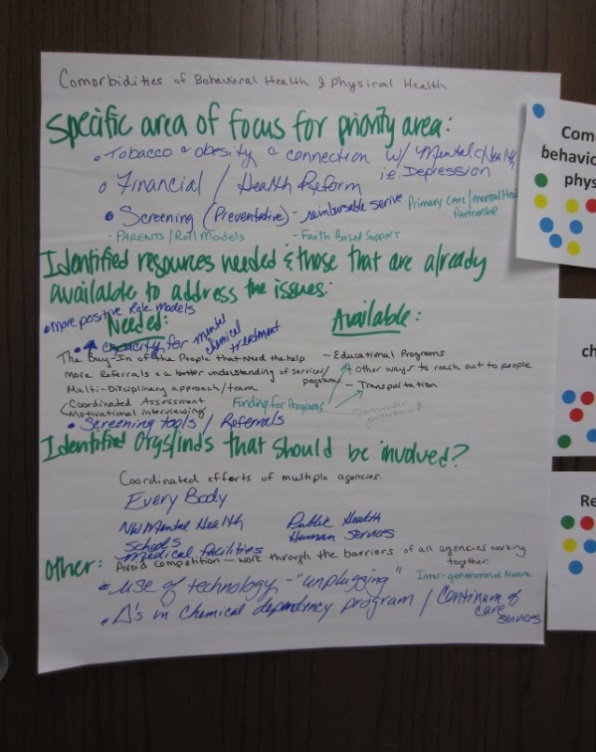 Comorbidities of Behavioral Health & Physical Health
Specific area of focus for priority area:
• Tobacco & obesity & connection w/ Mental Health,
i.e. Depression
• Financial / Health Reform
• Screening (Preventative) - reimbursable serive Primary Care / mental Heal
Partnership
- PARENTS / Roll Models - Faith Based Support
Identified resources needed & those that are already
available to address the issues:
• more positive Role models
Needed:
Available:
• ↑ capacity for mental
chemical treatment
The Buy-In of the People that need the help - Educational Programs
more Referrals & a better understanding of services/
programs
Other ways to reach out to people
Multi-Disciplinary approach/team - Transportation
Coordinated Assessment
Motivational interviewing
Funding for Programs
• Screening tools / Referrals
Identified Orgs/inds that should be involved?
Coordinated efforts of multiple agencies.
Every Body
NW Mental Health Public Health
Schools Human Services
Medical facilities
Other: Avoid competition - work through the barriers of all agencies working
together.
• use of technology - "unplugging" Inter-generational Nature
• Δ's in Chemical dependency program / Continuum of
care
services
Com
behavio
phys
ch
Re